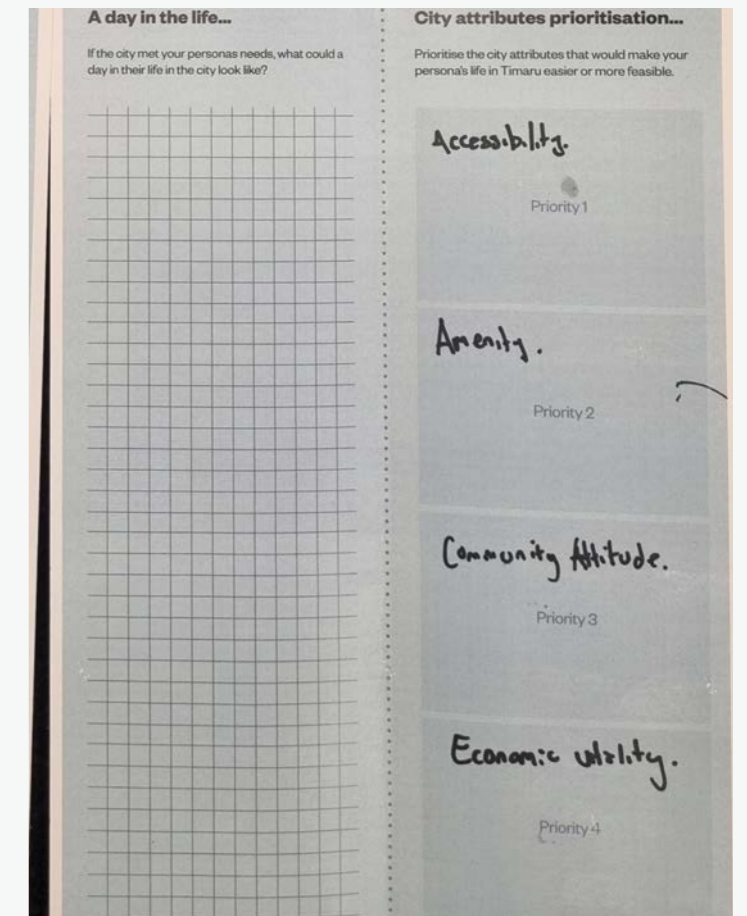 A day in the life...
If the city met your personas needs, what could a
day in their life in the city look like?
City attributes prioritisation...
Prioritise the city attributes that would make your
persona's life in Timaru easier or more feasible.
Accessibility.
Priority 1
Amenity.
Priority 2
Community Attitude.
Priority 3
Economic vitality.
Priority 4